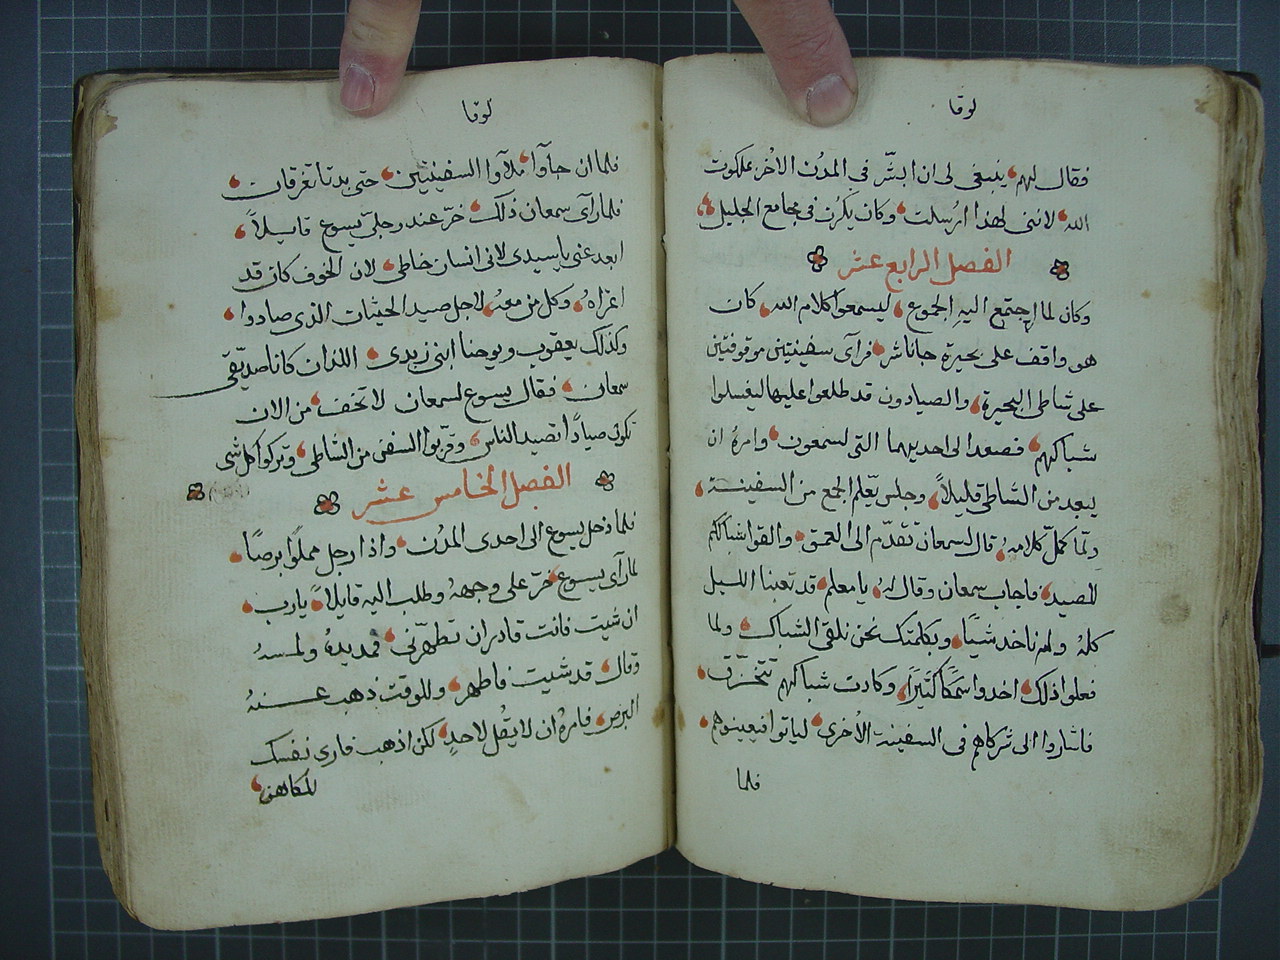 لوقا
فقال لهم ينبغي لي ان ابشّر في المدُن الاُخر بملكوت
الله لانني لهذا ارُسلت وكان يكرُز في مجامع الجليل
الفصل الرابع عشر
وكان لما اجتمع اليهِ الجموع ليسمعوا كلام الله كان
هو واقف على بحيرة جاناشر فرآى سفينتين موقوفتين
على شاطى البحيرة والصيادون قد طلعوا عليها ليغسلوا
شباكهم فصعد الى احديهما التى لسمعون وامرهُ ان
يبعد من الشاطى قليلاً وجلس يعّلم الجمع من السفينة
ولمّا كمّل كلامهُ قال لسمعان تقدّم الى العمق والقوا شباككم
للصيد فاجاب سمعان وقال لهُ يا معلم قد تعبنا الليل
كلهُ ولم ناخد شيًا وبكلمتك نحن نلقى الشباك ولما
فعلوا ذلك اخدوا سمكًا كثيرًا وكادت شباكهم تتخرّق
فاشاروا الى شركاهم فى السفينة الاُخرى لياتوا فيعينوهم
فلما
لوقا
فلما ان جاَوا ملآوا السفينتين حتى بدتا تغرقان
فلما رآى سمعان ذلك خرّ عند رجلى يسوع قايلاً
ابعد عنى يا سيدى لانى انسان خاطى لان الخوف كان قد
اعتراهُ وكل من معهُ لاجل صيد الحيتان الذى صادوا
وكذلك يعقوب ويوحنا ابنى زبدى اللذان كانا صديقى
سمعان فقال يسوع لسمعان لا تخف من الان
تكون صيادًا تصيد الناس وقرّبوا السفن من الشاطى وتركوا كل شى
الفصل الخامس عشر
فلما دخل يسوع الى احدى المدُن واذا رجل مملوا برصًا
لما رآى يسوع خرّ على وجههِ وطلب اليه قايلاً يا رب
ان شيت فانت قادر ان تطهّرنى فمد يدهُ ولمسهُ
وقال قد شيت فاطهر وللوقت ذهب عنهُ
البرص فامرهُ ان لا يقُل لاحدٍ لكن اذهب فارى نفسك
للكاهن